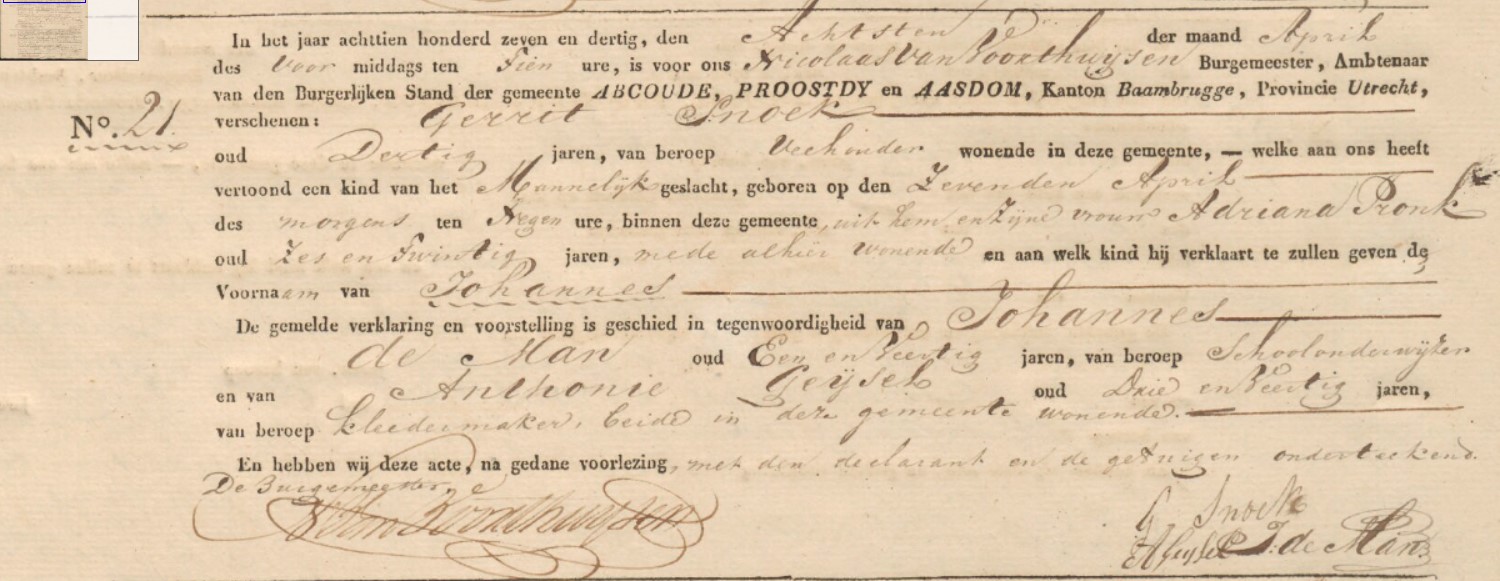 In het jaar achttien honderd zeven en dertig, den Achtsten der maand April
des Voor middags ten Tien ure, is voor ons Nicolaas Van Voorthuijsen Burgemeester, Ambtenaar
van den Burgerlijken Stand der gemeente ABCOUDE, PROOSTDY en AASDOM, Kanton Baambrugge, Provincie Utrecht,
No. 21.
verschenen: Gerrit Snoek
oud Dertig jaren, van beroep Veehouder wonende in deze gemeente, — welke aan ons heeft
vertoond een kind van het Mannelijk geslacht, geboren op den Zevenden April
des morgens ten Negen ure, binnen deze gemeente, uit hem en Zijne vrouw Adriana Pronk
oud Zes en Twintig jaren, mede alhier wonende en aan welk kind hij verklaart te zullen geven de
Voornaam van Johannes
De gemelde verklaring en voorstelling is geschied in tegenwoordigheid van Johannes
de Man oud Een en Veertig jaren, van beroep Schoolonderwijzer
en van Anthonie Geijsel oud Drie en Veertig jaren,
van beroep kleedermaker, beide in deze gemeente wonende.
En hebben wij deze acte, na gedane voorlezing, met den declarant en de getuigen onderteekend.
De Burgemeester,
NVan Voorthuijsen
G Snoek
A Geijsel J: de Man